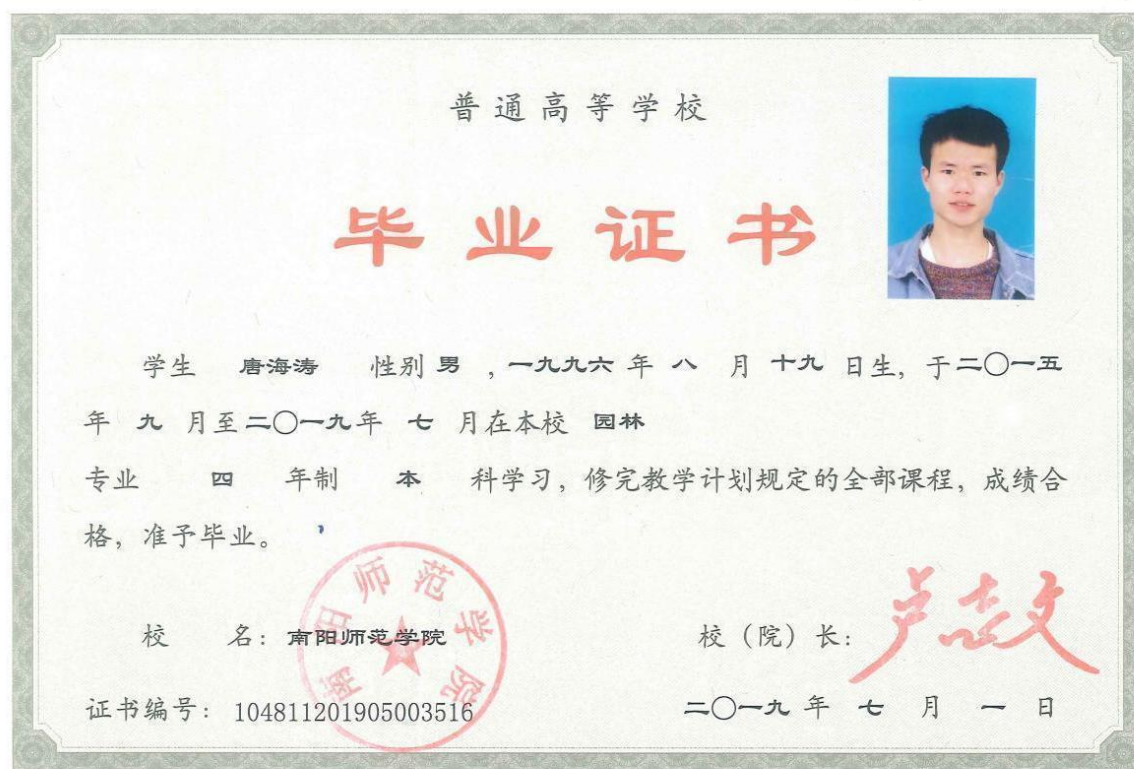 普通高等学校
毕业证书
学生 唐海涛 性别 男 ，一九九六 年 八 月 十九 日生，于二〇一五
年 九 月至二〇一九年 七 月在本校 园林
专业 四 年制 本 科学习，修完教学计划规定的全部课程，成绩合
格，准予毕业。
校 名：南阳师范学院
南阳师范学院
校（院）长：卢志文
证书编号：104811201905003516
二〇一九 年 七 月 一 日